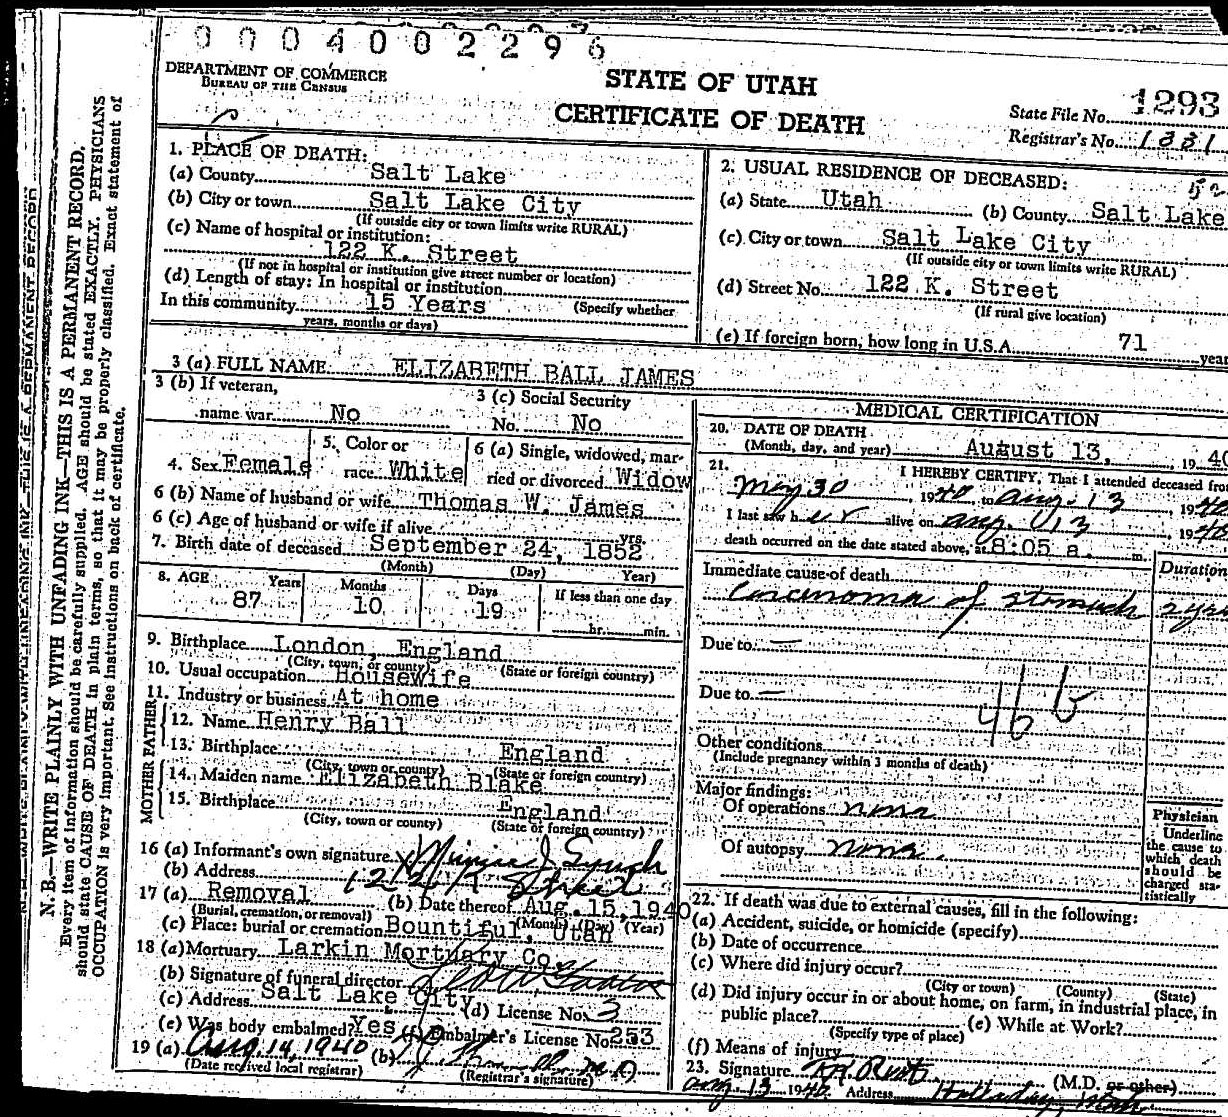 0004002296
DEPARTMENT OF COMMERCE
BUREAU OF THE CENSUS
STATE OF UTAH
CERTIFICATE OF DEATH
State File No. 1293
Registrar's No. 1331
1. PLACE OF DEATH:
(a) County Salt Lake
(b) City or town Salt Lake City
(If outside city or town limits write RURAL)
(c) Name of hospital or institution:
122 K. Street
(If not in hospital or institution give street number or location)
(d) Length of stay: In hospital or institution
In this community 15 Years (Specify whether
years, months or days)
2. USUAL RESIDENCE OF DECEASED:
(a) State Utah (b) County Salt Lake
(c) City or town Salt Lake City
(If outside city or town limits write RURAL)
(d) Street No. 122 K. Street
(If rural give location)
(e) If foreign born, how long in U.S.A. 71 year
3 (a) FULL NAME ELIZABETH BALL JAMES
3 (b) If veteran,
name war No
3 (c) Social Security
No. No
4. Sex Female
5. Color or
race White
6 (a) Single, widowed, mar-
ried or divorced Widow
6 (b) Name of husband or wife Thomas W. James
6 (c) Age of husband or wife if alive yrs.
7. Birth date of deceased September 24, 1852
(Month) (Day) Year)
8. AGE Years Months Days If less than one day
87 10 19 hr. min.
9. Birthplace London, England
(City, town, or county) (State or foreign country)
10. Usual occupation Housewife
11. Industry or business At home
FATHER
12. Name Henry Ball
13. Birthplace England
(City, town or county) (State or foreign country)
MOTHER
14. Maiden name Elizabeth Blake
15. Birthplace England
(City, town or county) (State or foreign country)
16 (a) Informant's own signature
(b) Address 122 K Street
17 (a) Removal (b) Date thereof Aug. 15, 1940
(Burial, cremation, or removal) (Month) (Day) (Year)
(c) Place: burial or cremation Bountiful, Utah
18 (a) Mortuary Larkin Mortuary Co.
(b) Signature of funeral director
(c) Address Salt Lake City (d) License No. 3
(e) Was body embalmed? Yes (f) Embalmer's License No. 253
19 (a) Aug. 14, 1940 (b) M.D
(Date received local registrar) (Registrar's signature)
MEDICAL CERTIFICATION
20. DATE OF DEATH
(Month, day, and year) August 13, 1940
21. I HEREBY CERTIFY, That I attended deceased from
May 30, 1940 to Aug. 13, 1940
I last saw her alive on Aug. 13 1940
death occurred on the date stated above, at 8:05 a. m.
Immediate cause of death Duration
Carcinoma of stomach 2 yrs
Due to —
Due to —
46 b
Other conditions
(Include pregnancy within 3 months of death)
Major findings:
Of operations none
Of autopsy none
Physician
Underline
the cause to
which death
should be
charged sta-
tistically
22. If death was due to external causes, fill in the following:
(a) Accident, suicide, or homicide (specify)
(b) Date of occurrence
(c) Where did injury occur?
(City or town) (County) (State)
(d) Did injury occur in or about home, on farm, in industrial place, in
public place? (e) While at Work?
(Specify type of place)
(f) Means of injury
23. Signature (M.D. or other)
Aug 13 1940 Address Holladay, Utah
N. B.—WRITE PLAINLY WITH UNFADING INK—THIS IS A PERMANENT RECORD.
Every item of information should be carefully supplied. AGE should be stated EXACTLY. PHYSICIANS
should state CAUSE OF DEATH in plain terms, so that it may be properly classified. Exact statement of
OCCUPATION is very important. See instructions on back of certificate.